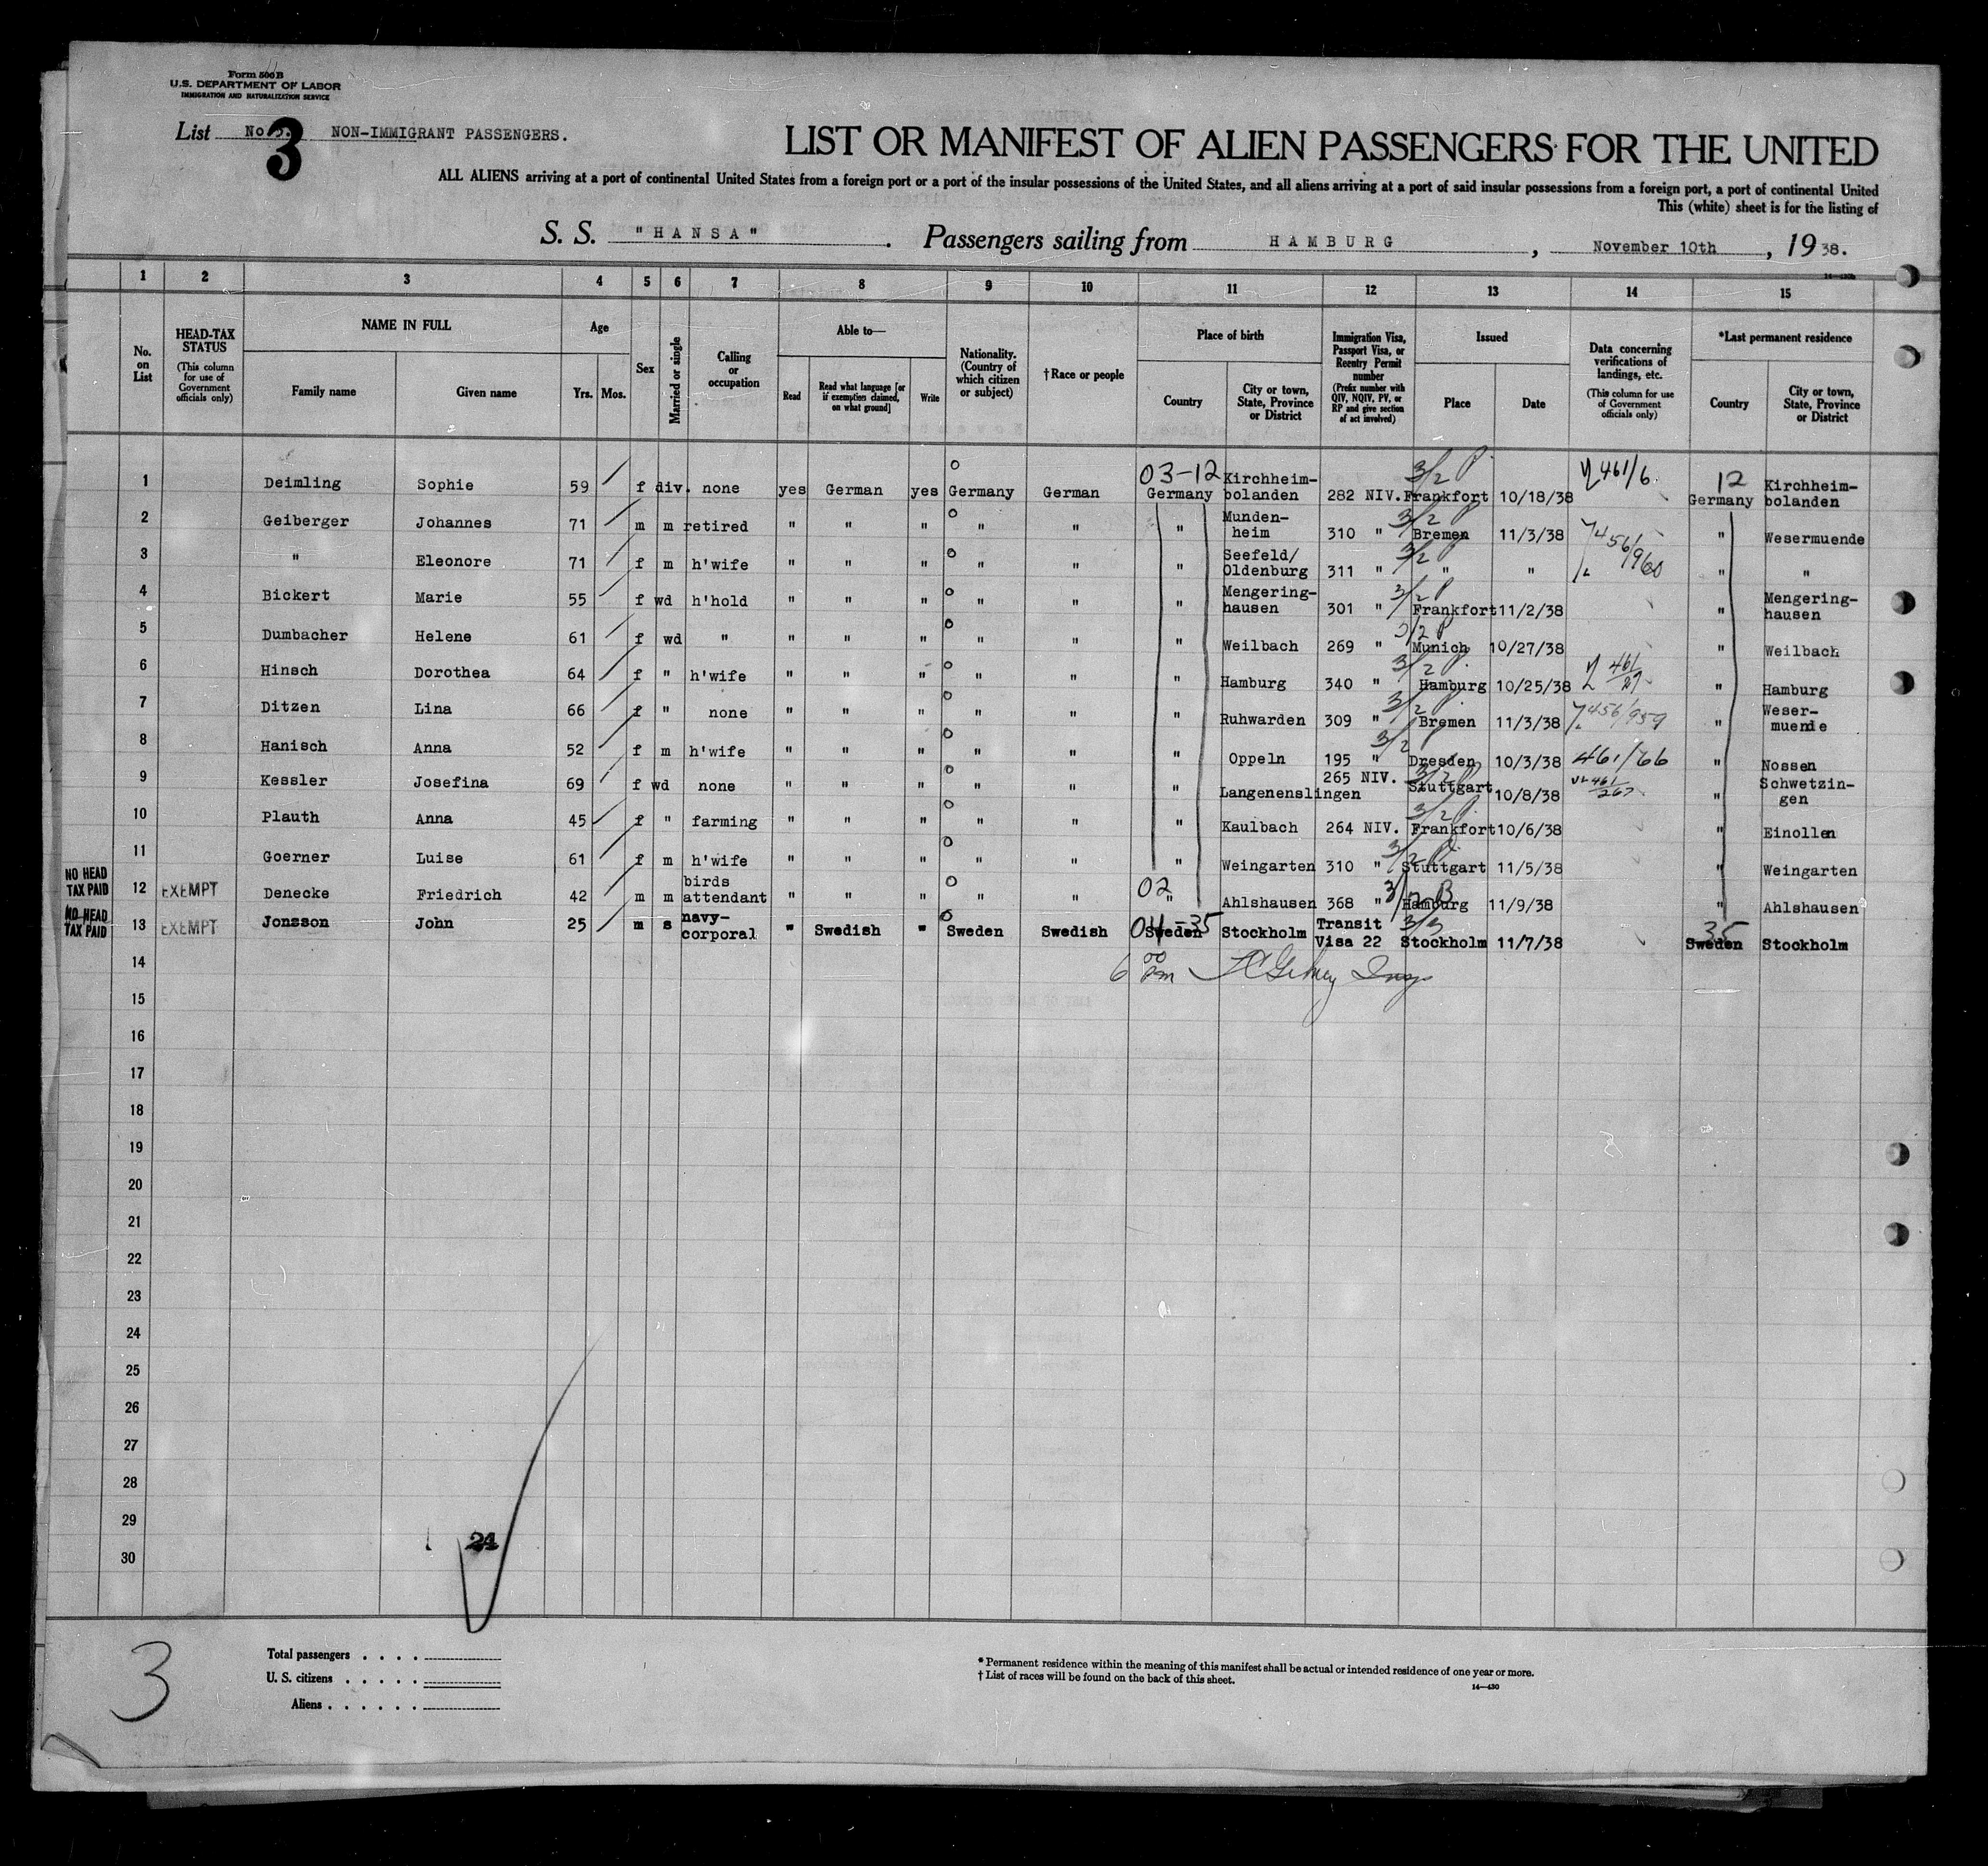 Form 500 B
U.S. DEPARTMENT OF LABOR
IMMIGRATION AND NATURALIZATION SERVICE
List No 3. NON-IMMIGRANT PASSENGERS.
3
LIST OR MANIFEST OF ALIEN PASSENGERS FOR THE UNITED
ALL ALIENS arriving at a port of continental United States from a foreign port or a port of the insular possessions of the United States, and all aliens arriving at a port of said insular possessions from a foreign port, a port of continental United
This (white) sheet is for the listing of
S. S. "HANSA". Passengers sailing from HAMBURG, November 10th, 1938.
1 2 3 4 5 6 7 8 9 10 11 12 13 14 15
No. on List
HEAD-TAX STATUS (This column for use of Government officials only)
NAME IN FULL
Family name Given name
Age
Yrs. Mos.
Sex
Married or single
Calling or occupation
Able to—
Read Read what language [or if exemption claimed, on what ground] Write
Nationality. (Country of which citizen or subject)
†Race or people
Place of birth
Country City or town, State, Province or District
Immigration Visa, Passport Visa, or Reentry Permit number (Prefix number with QIV, NQIV, PV, or RP and give section of act involved)
Issued
Place Date
Data concerning verifications of landings, etc. (This column for use of Government officials only)
*Last permanent residence
Country City or town, State, Province or District
1 Deimling Sophie 59 f div. none yes German yes Germany German 03-12 Germany Kirchheim-bolanden 282 NIV. 3/2 P Frankfort 10/18/38 461/6 12 Germany Kirchheim-bolanden
2 Geiberger Johannes 71 m m retired " " " " " " Munden-heim 310 " 3/2 P Bremen 11/3/38 " Wesermuende
3 " Eleonore 71 f m h'wife " " " " " " Seefeld/Oldenburg 311 " 3/2 P " " 456/960 " "
4 Bickert Marie 55 f wd h'hold " " " " " " Mengering-hausen 301 " 3/2 P Frankfort 11/2/38 " Mengering-hausen
5 Dumbacher Helene 61 f wd " " " " " " " Weilbach 269 " 3/2 P Munich 10/27/38 " Weilbach
6 Hinsch Dorothea 64 f " h'wife " " " " " " Hamburg 340 " 3/2 P. Hamburg 10/25/38 461/27 " Hamburg
7 Ditzen Lina 66 f " none " " " " " " Ruhwarden 309 " 3/2 P. Bremen 11/3/38 456/959 " Weser-muende
8 Hanisch Anna 52 f m h'wife " " " " " " Oppeln 195 " 3/2 P Dresden 10/3/38 461/66 " Nossen
9 Kessler Josefina 69 f wd none " " " " " " Langenenslingen 265 NIV. 3/2 P Stuttgart 10/8/38 461/267 " Schwetzin-gen
10 Plauth Anna 45 f " farming " " " " " " Kaulbach 264 NIV. 3/2 P. Frankfort 10/6/38 " Einollen
11 Goerner Luise 61 f m h'wife " " " " " " Weingarten 310 " 3/2 P. Stuttgart 11/5/38 " Weingarten
NO HEAD TAX PAID 12 EXEMPT Denecke Friedrich 42 m m birds attendant " " " " " 02 " Ahlshausen 368 " 3/2 B Hamburg 11/9/38 " Ahlshausen
NO HEAD TAX PAID 13 EXEMPT Jonzson John 25 m s navy-corporal " Swedish " Sweden Swedish 04-35 Sweden Stockholm Transit Visa 22 3/3 Stockholm 11/7/38 35 Sweden Stockholm
14
15
16
17
18
19
20
21
22
23
24
25
26
27
28
29
30
24
3
Total passengers
U. S. citizens
Aliens
* Permanent residence within the meaning of this manifest shall be actual or intended residence of one year or more.
† List of races will be found on the back of this sheet.
14—430